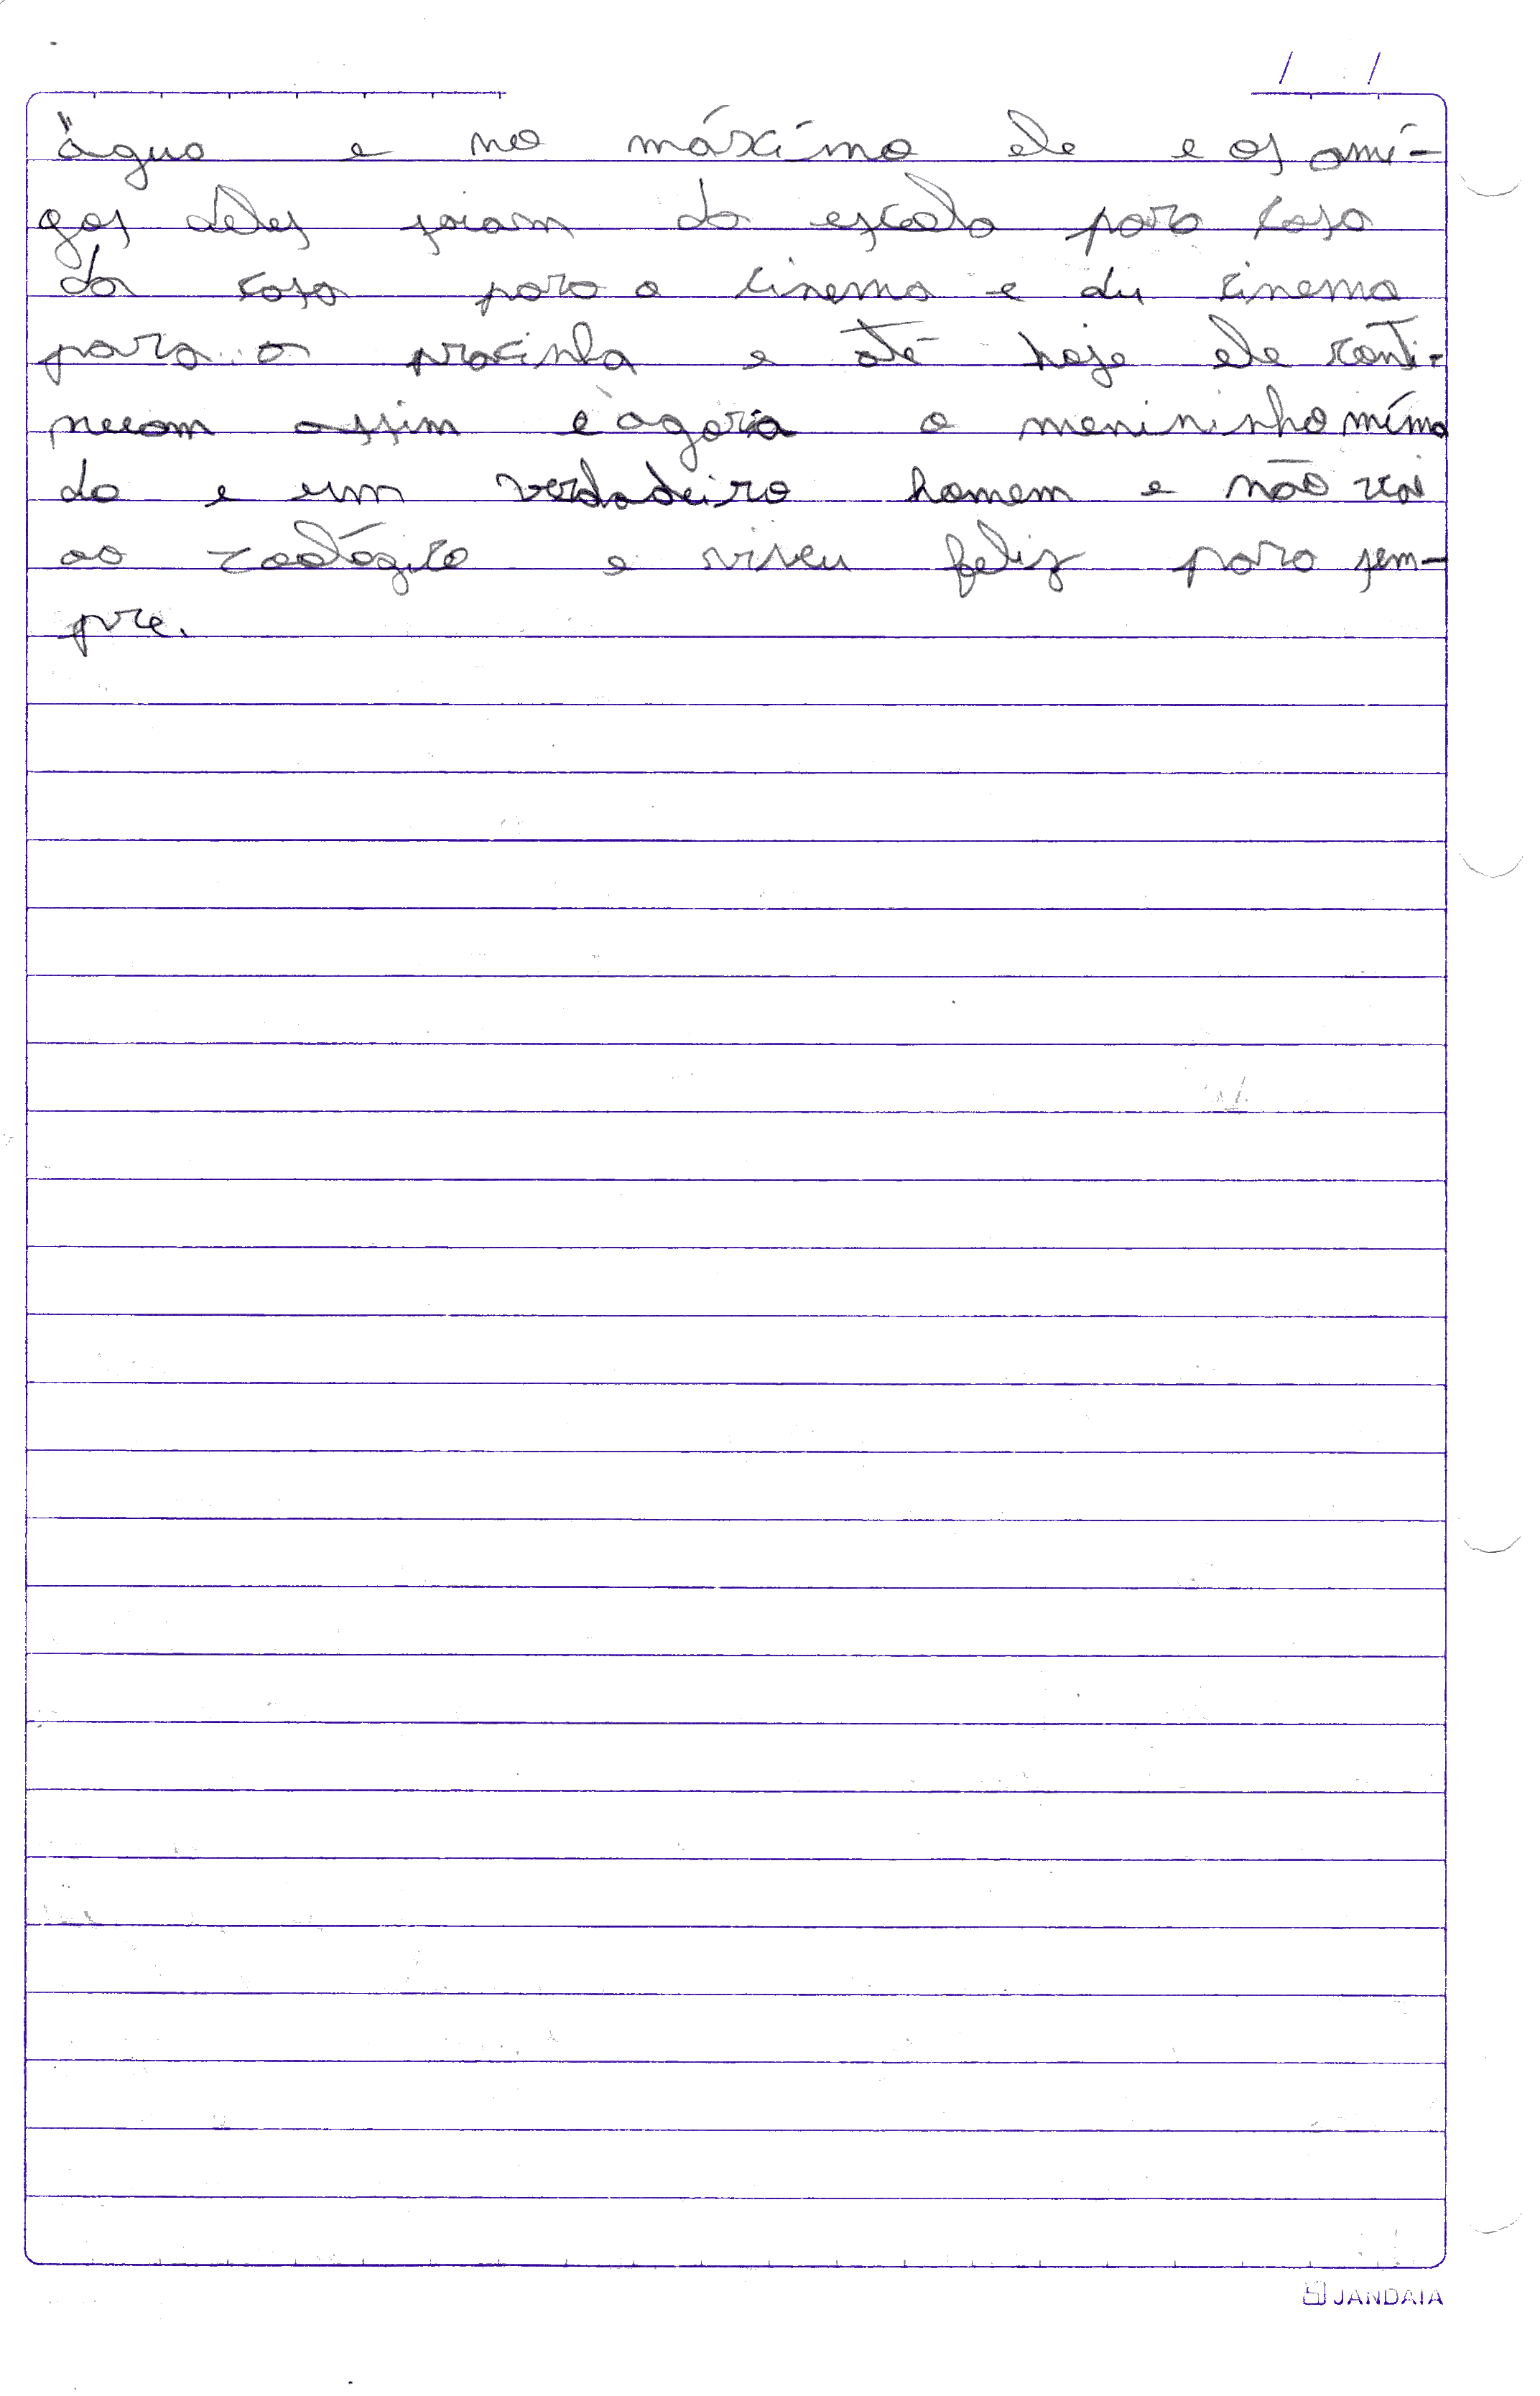 água e no máximo ele e os ami-
gos deles saiam da escola para casa
da casa para o cinema e du cinema
para a pracinha e até hoje ele conti-
nuam assim e agora o menininho mima
do e um verdadeiro homem e não vai
ao zoológico e viveu feliz para sem-
pre.
JANDAIA